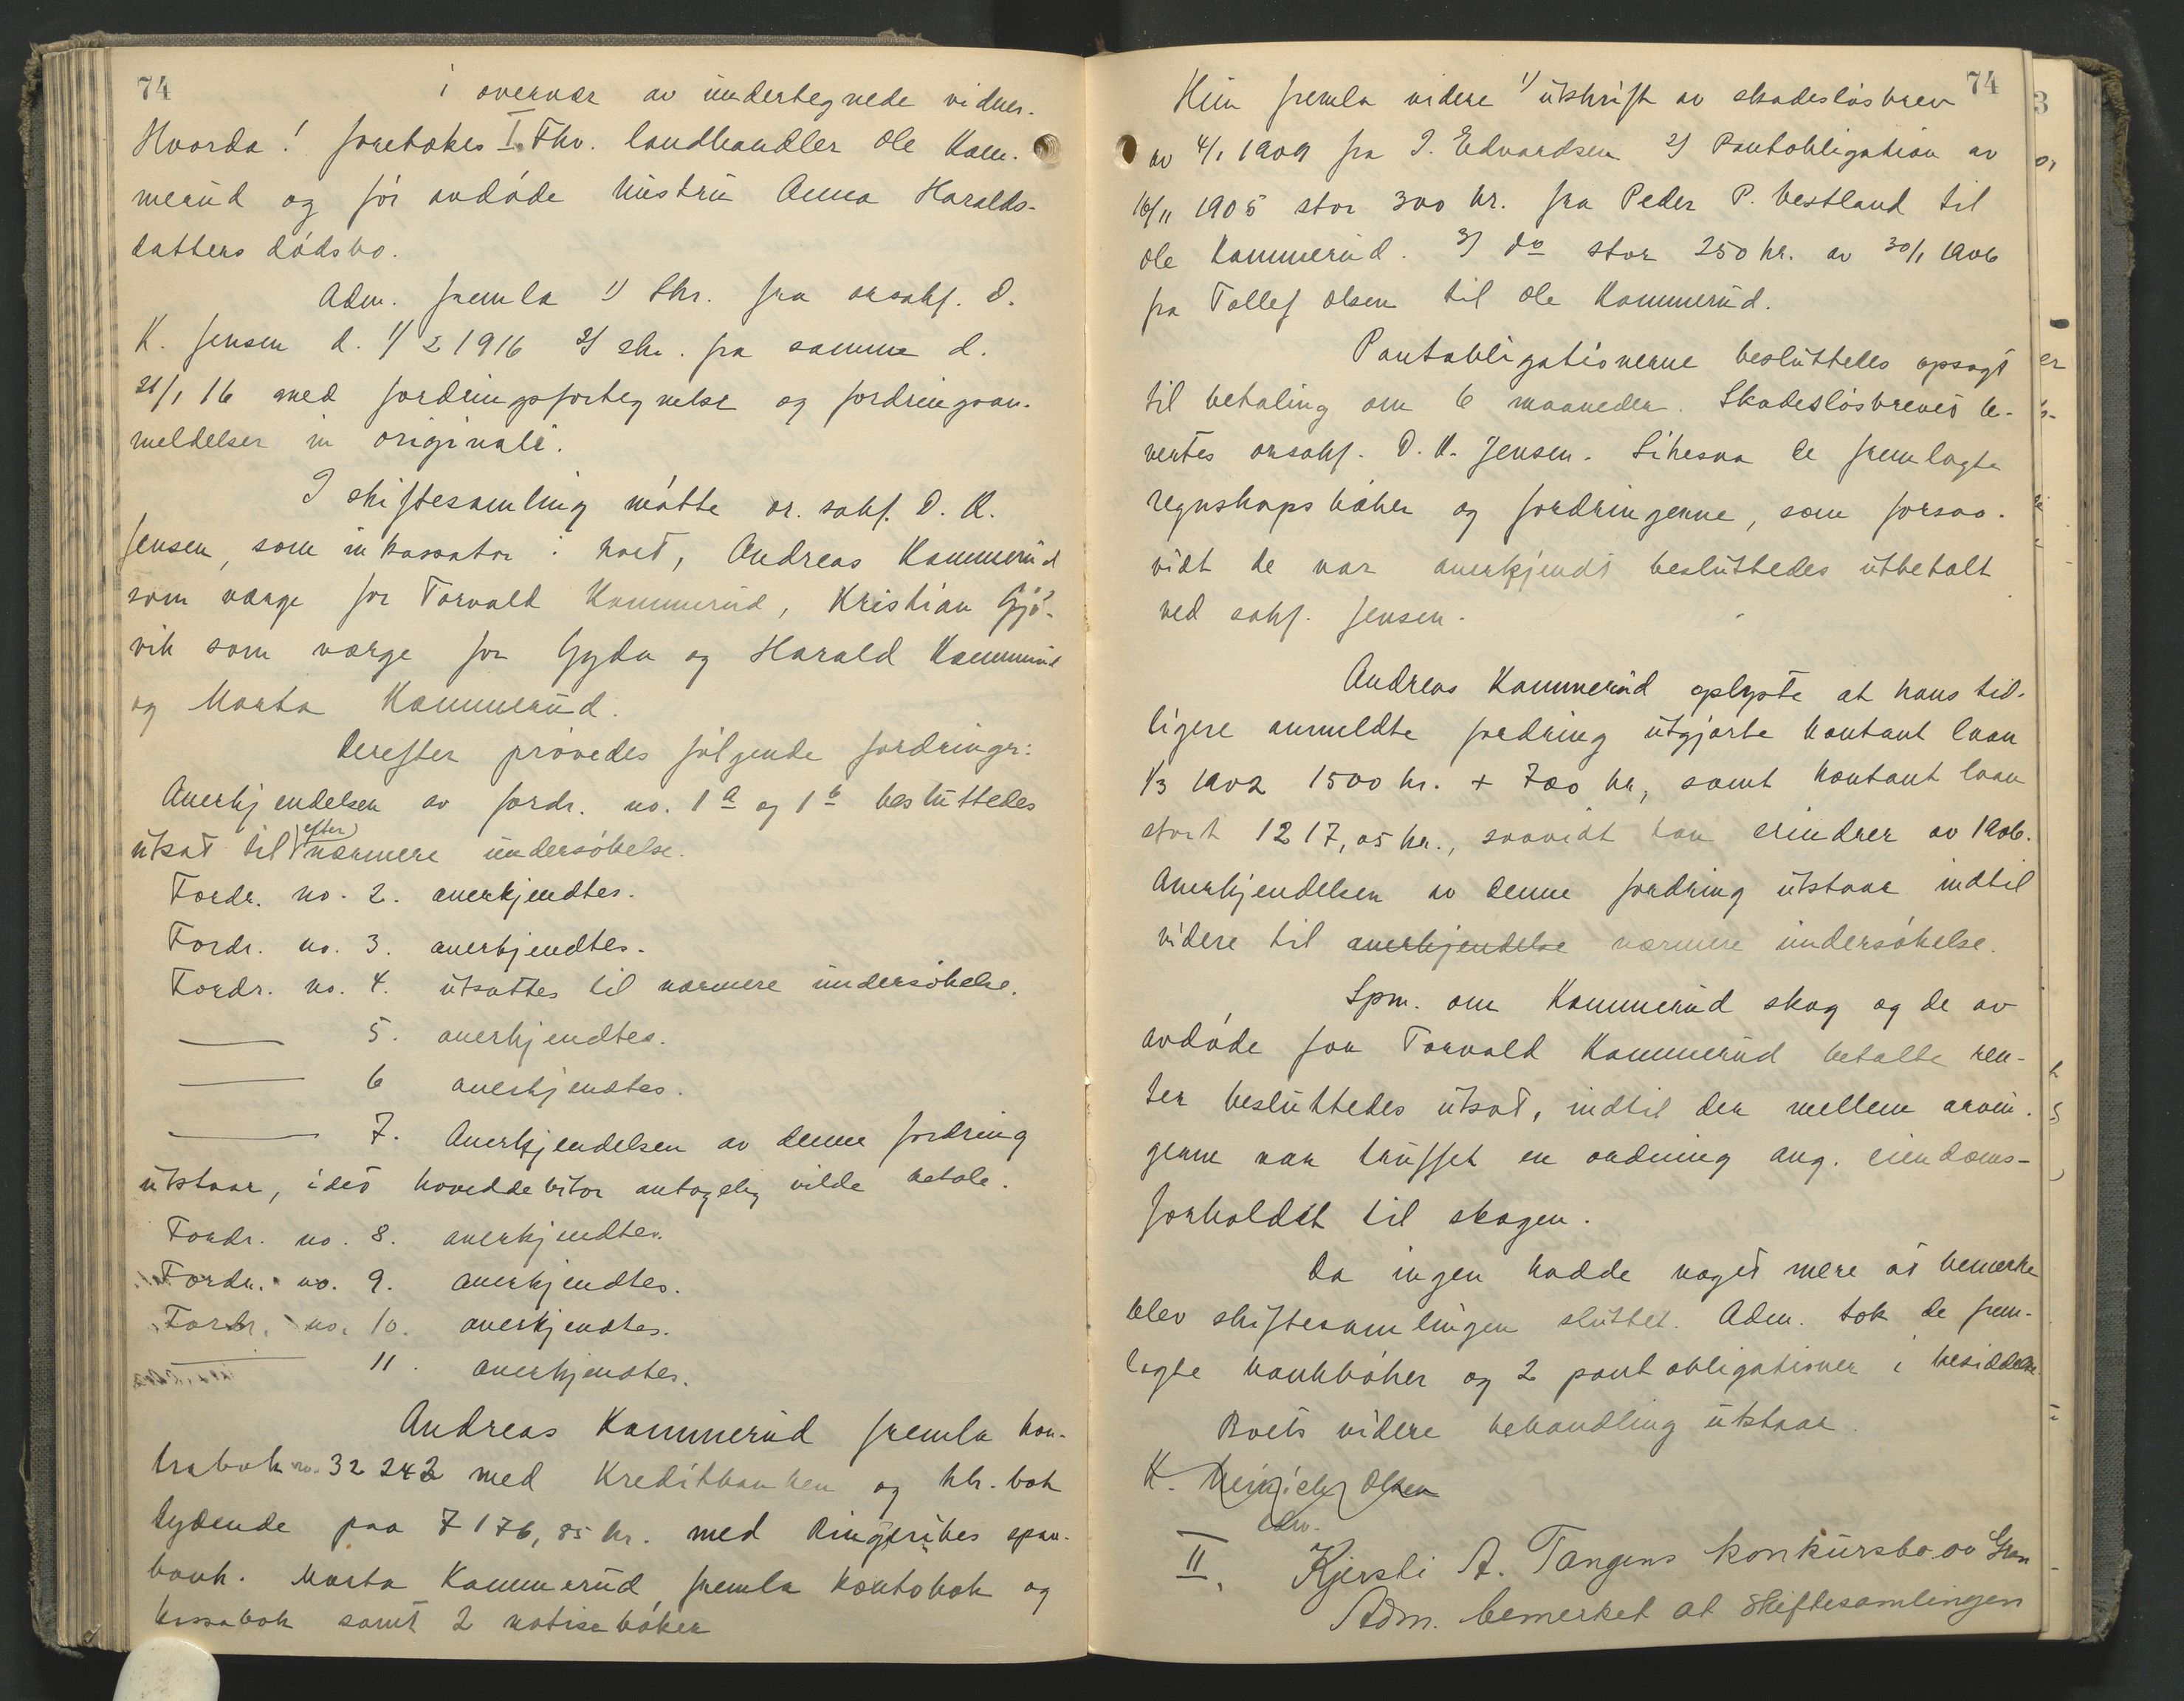 74
i overvær av undertegnede vidner.
Hvorda! foretokes I. Fhv. landhandler Ole Kam-
merud og før avdøde hustru Anna Haralds-
datters dødsbo.
Adm. fremla 1) Skr. fra orsakf. D.
K. Jensen d. 1/2 1916 2) skr. fra samme d.
21/1 16 med fordringsfortegnelse og fordringsan-
meldelser in originali.
I skiftesamling møtte or. sakf. D. K.
Jensen, som inkassator i boet, Andreas Kammerud
som værge for Torvald Kammerud, Kristian Gjø-
vik som værge for Gyda og Harald Kammerud
og Marta Kammerud.
Derefter prøvedes følgende fordringer:
Anerkjendelsen av fordr. no. 1a og 1b besluttedes
utsat til (efter) nærmere undersøkelse.
Fordr. no. 2. anerkjendtes.
Fordr. no. 3. anerkjendtes.
Fordr. no. 4. utsattes til nærmere undersøkelse.
— 5. anerkjendtes.
— 6 anerkjendtes.
— 7. Anerkjendelsen av denne fordring
utstaar, idet hoveddebitor antagelig vilde betale.
Fordr. no. 8. anerkjendtes.
Fordr. no. 9. anerkjendtes.
Fordr. no. 10. anerkjendtes.
— 11. anerkjendtes.
Andreas Kammerud fremla kon-
trabok no. 32242 med Kreditbanken og ktr. bok
lydende paa 7176,85 kr. med Ringerikes spare-
bank. Marta Kammerud fremla kontobok og
kassabok samt 2 notisebøker
74
Hun fremla videre 1) utskrift av skadesløsbrev
av 4/1 1909 fra I. Edvardsen 2) Pantobligation av
16/11 1905 stor 300 kr. fra Peder P. Vestland til
Ole Kammerud. 3) do stor 250 kr. av 30/1 1906
fra Tollef Olsen til Ole Kammerud.
Pantobligationerne besluttedes opsagt
til betaling om 6 maaneder. Skadesløsbrevet le-
vertes orsakf. D. K. Jensen. Likesaa de fremlagte
regnskapsbøker og fordringerne, som forsaa-
vidt de var anerkjendt besluttedes utbetalt
ved sakf. Jensen.
Andreas Kammerud oplyste at hans tid-
ligere anmeldte fordring utgjorte kontant laan
1/3 1902 1500 kr. + 700 kr, samt kontant laan
stort 1217,05 kr., saavidt han erindrer av 1906.
Anerkjendelsen av denne fordring utstaar indtil
videre til anerkjendelse nærmere undersøkelse.
Spm. om Kammerud skog og de av
avdøde for Torvald Kammerud betalte ren-
ter besluttedes utsat, indtil der mellem arvin-
gerne var truffet en ordning ang. eiendoms-
forholdet til skogen.
Da ingen hadde noget mere at bemerke
blev skiftesamlingen sluttet. Adm. tok de frem-
lagte bankbøker og 2 pantobligationer i besiddelse
Boets videre behandling utstaar.
K. Heinrich Olsen
edsv.
II. Kjersti A. Tangens konkursbo av Gran
Adm. bemerket at skiftesamlingen